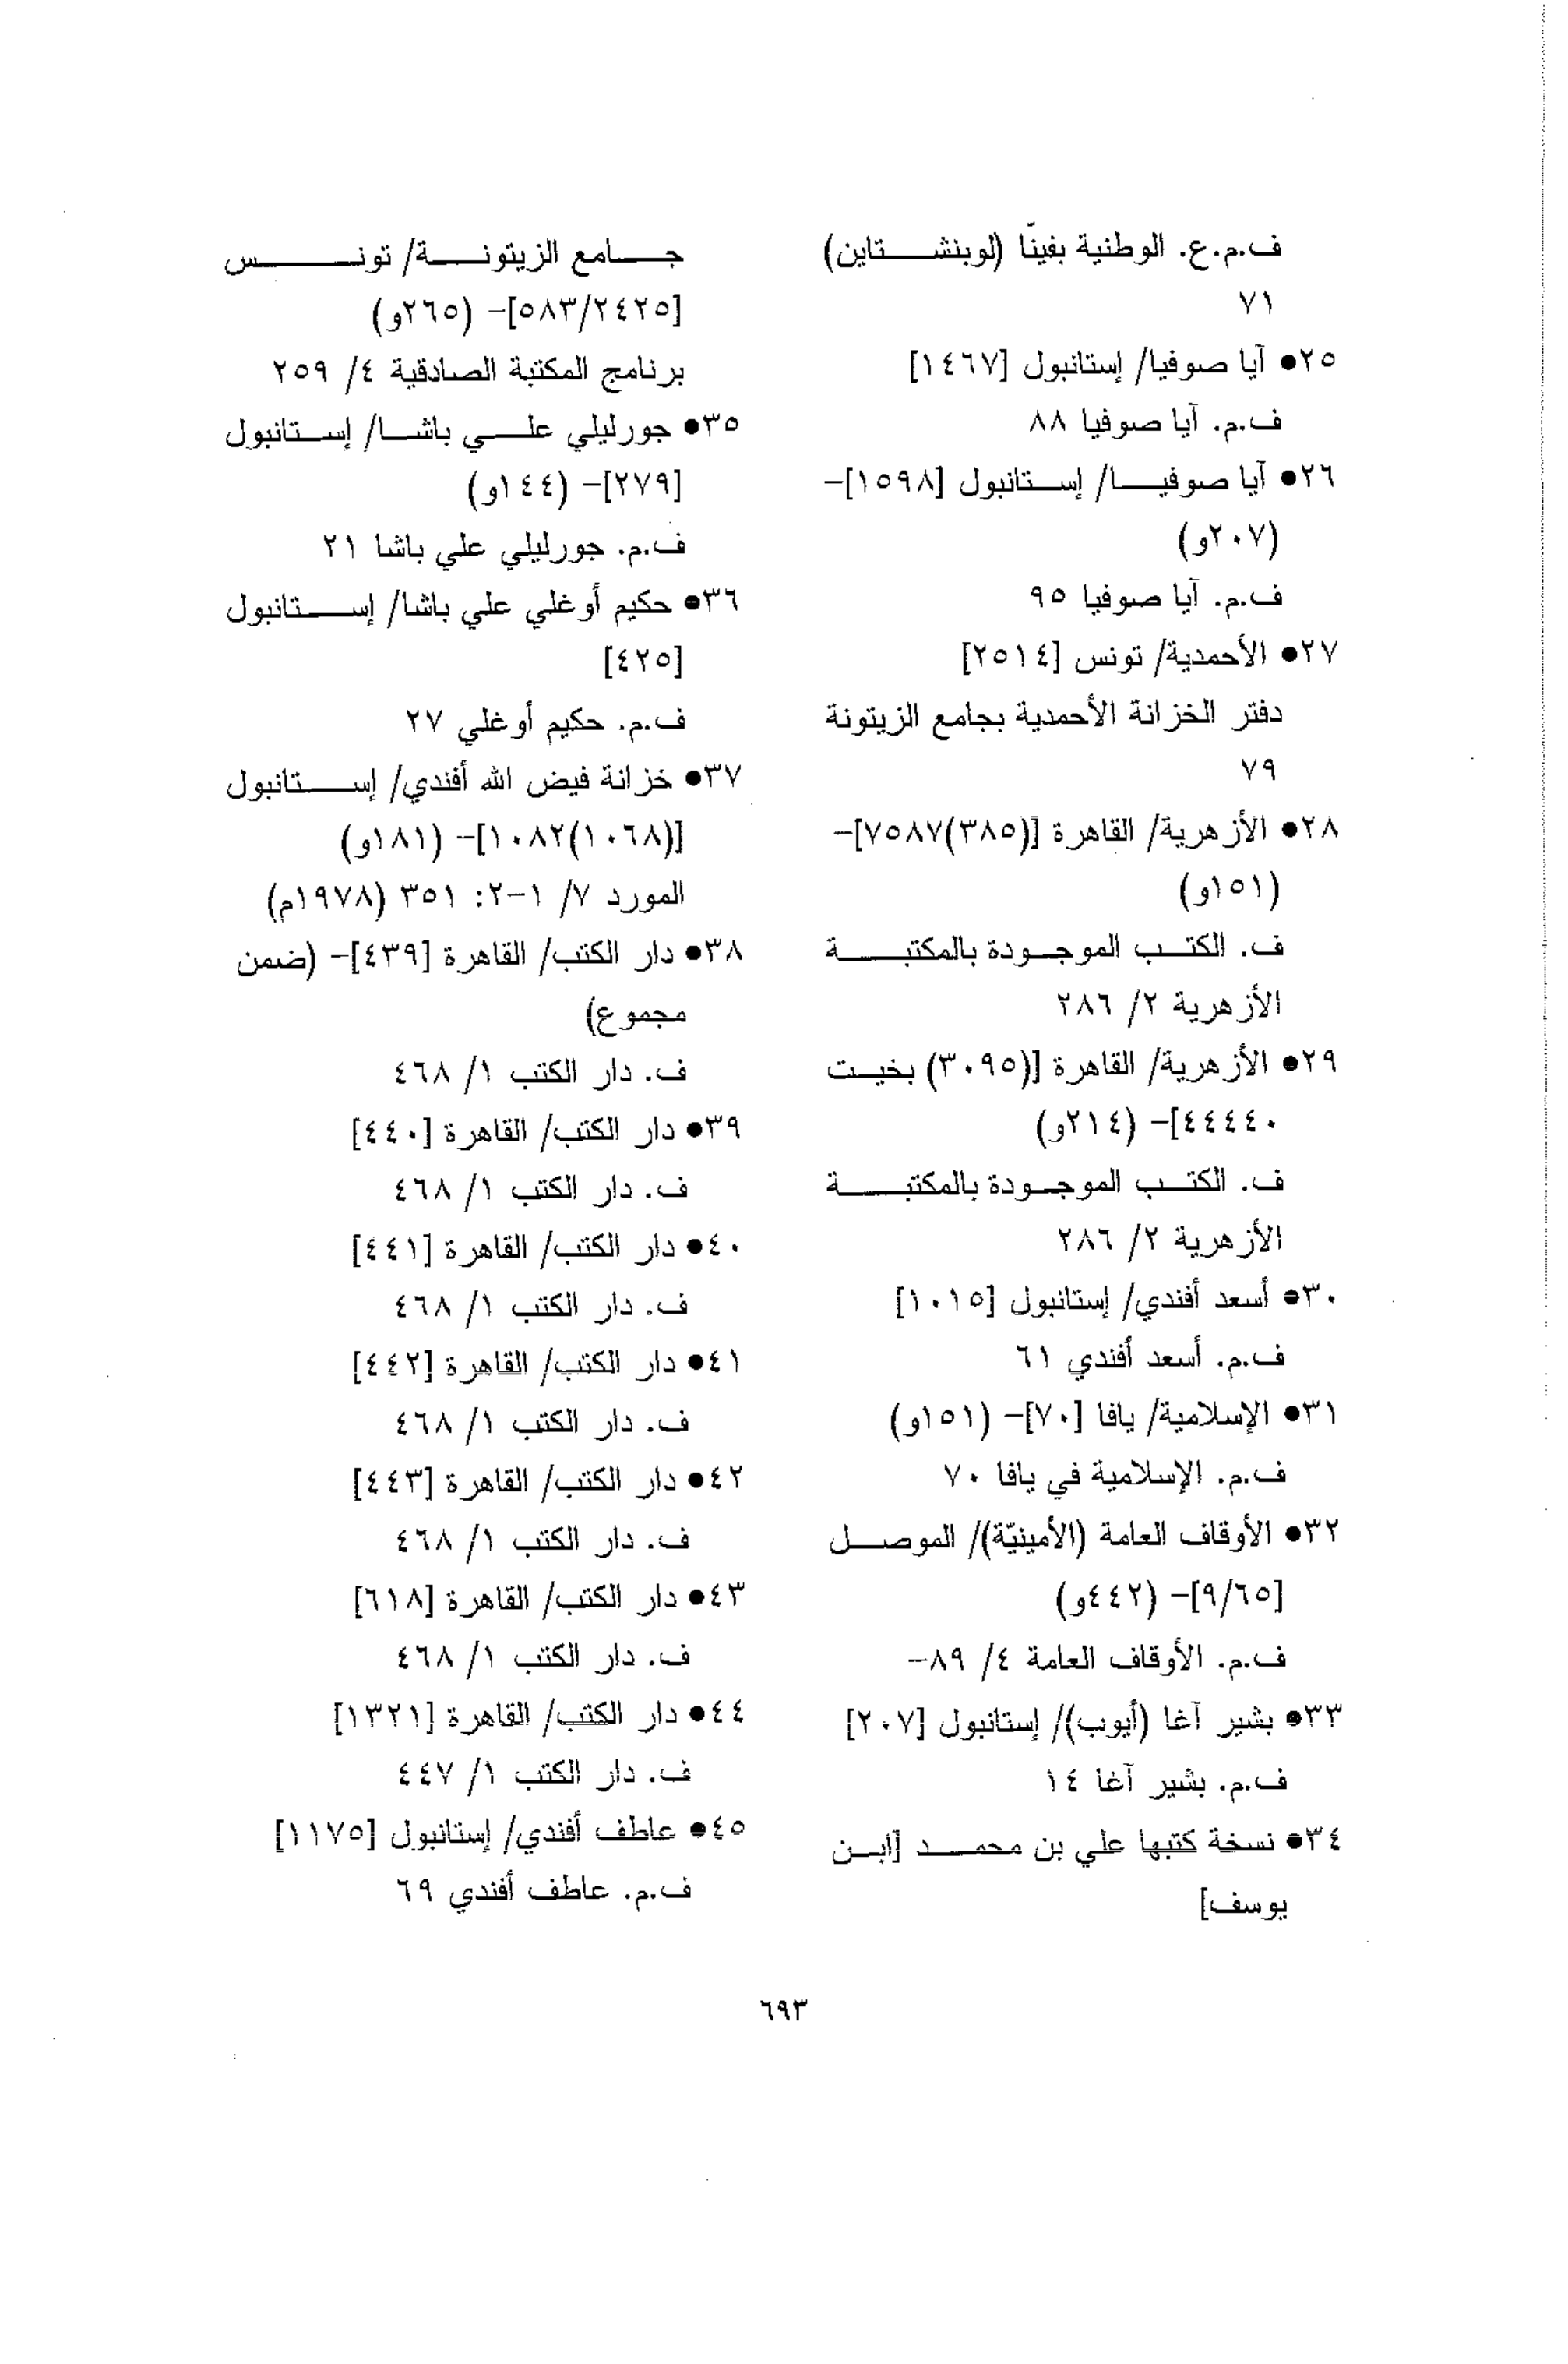 ف.م.ع. الوطنية بفينّا (لوبنشتاين)
٧١
٢٥● آيا صوفيا/ إستانبول [١٤٦٧]
ف.م. آيا صوفيا ٨٨
٢٦● آيا صوفيا/ إستانبول [١٥٩٨]-
(٢٠٧و)
ف.م. آيا صوفيا ٩٥
٢٧● الأحمدية/ تونس [٢٥١٤]
دفتر الخزانة الأحمدية بجامع الزيتونة
٧٩
٢٨● الأزهرية/ القاهرة [(٣٨٥)٧٥٨٧]-
(١٥١و)
ف. الكتب الموجودة بالمكتبة
الأزهرية ٢/ ٢٨٦
٢٩● الأزهرية/ القاهرة [(٣٠٩٥) بخيت
٤٤٤٤٠]- (٢١٤و)
ف. الكتب الموجودة بالمكتبة
الأزهرية ٢/ ٢٨٦
٣٠● أسعد أفندي/ إستانبول [١٠١٥]
ف.م. أسعد أفندي ٦١
٣١● الإسلامية/ يافا [٧٠]- (١٥١و)
ف.م. الإسلامية في يافا ٧٠
٣٢● الأوقاف العامة (الأمينيّة)/ الموصل
[٩/٦٥]- (٤٤٢و)
ف.م. الأوقاف العامة ٤/ ٨٩-
٣٣● بشير آغا (أيوب)/ إستانبول [٢٠٧]
ف.م. بشير آغا ١٤
٣٤● نسخة كتبها علي بن محمد [ابن
يوسف]
جامع الزيتونة/ تونس
[٥٨٣/٢٤٢٥]- (٢٦٥و)
برنامج المكتبة الصادقية ٤/ ٢٥٩
٣٥● جورليلي علي باشا/ إستانبول
[٢٧٩]- (١٤٤و)
ف.م. جورليلي علي باشا ٢١
٣٦● حكيم أوغلي علي باشا/ إستانبول
[٤٢٥]
ف.م. حكيم أوغلي ٢٧
٣٧● خزانة فيض الله أفندي/ إستانبول
[(١٠٦٨)١٠٨٢]- (١٨١و)
المورد ٧/ ١-٢: ٣٥١ (١٩٧٨م)
٣٨● دار الكتب/ القاهرة [٤٣٩]- (ضمن
مجموع)
ف. دار الكتب ١/ ٤٦٨
٣٩● دار الكتب/ القاهرة [٤٤٠]
ف. دار الكتب ١/ ٤٦٨
٤٠● دار الكتب/ القاهرة [٤٤١]
ف. دار الكتب ١/ ٤٦٨
٤١● دار الكتب/ القاهرة [٤٤٢]
ف. دار الكتب ١/ ٤٦٨
٤٢● دار الكتب/ القاهرة [٤٤٣]
ف. دار الكتب ١/ ٤٦٨
٤٣● دار الكتب/ القاهرة [٦١٨]
ف. دار الكتب ١/ ٤٦٨
٤٤● دار الكتب/ القاهرة [١٣٢١]
ف. دار الكتب ١/ ٤٤٧
٤٥● عاطف أفندي/ إستانبول [١١٧٥]
ف.م. عاطف أفندي ٦٩
٦٩٣